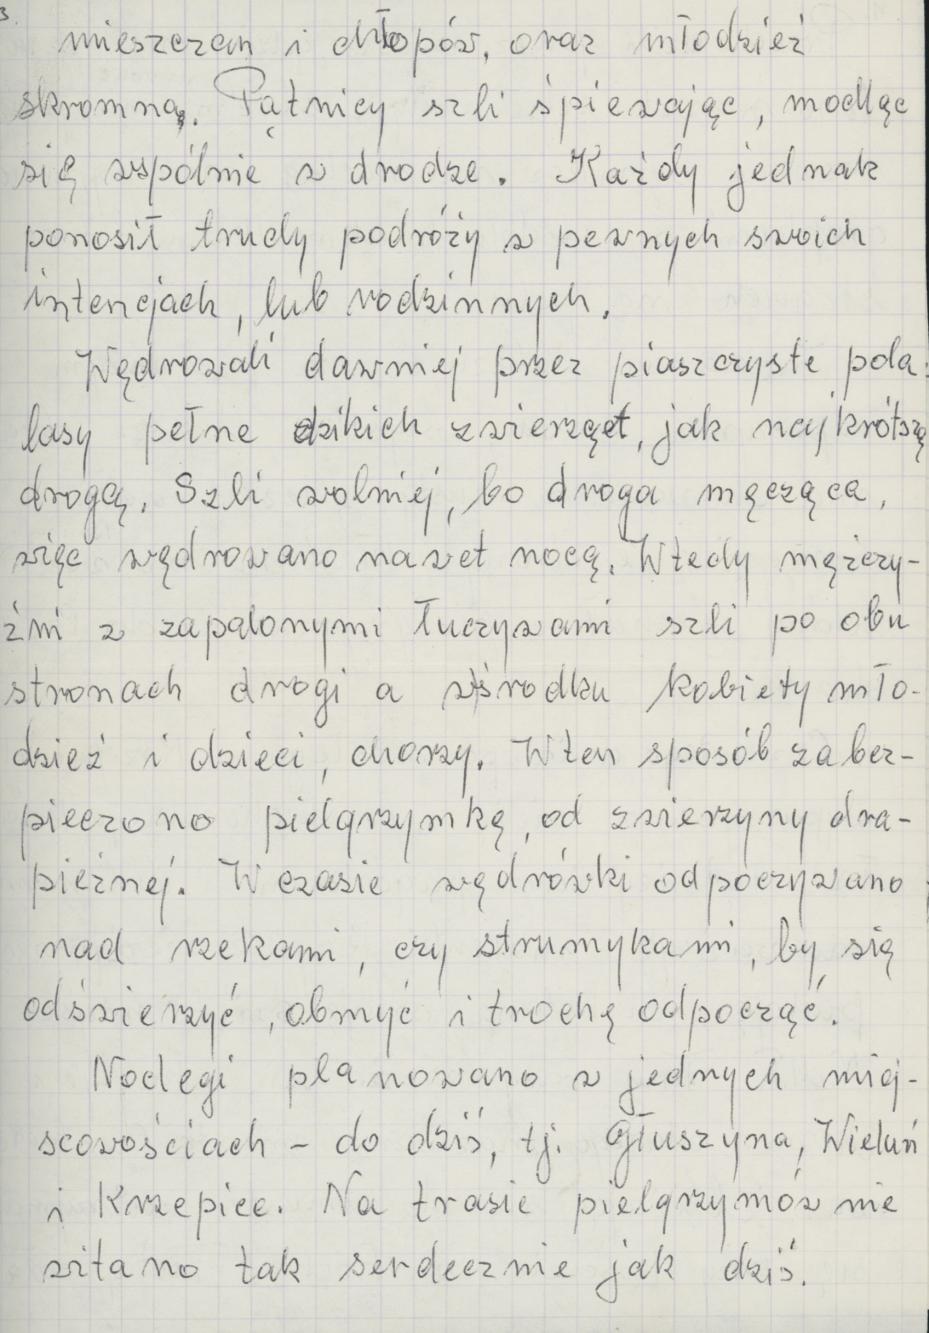 3.
mieszczan i chłopów, oraz młodzież
skromną. Pątnicy szli śpiewając, modląc
się wspólnie w drodze. Każdy jednak
ponosił trudy podróży w pewnych swoich
intencjach, lub rodzinnych.
Wędrowali dawniej przez piaszczyste pola,
lasy pełne dzikich zwierząt, jak najkrótszą
drogą. Szli wolniej, bo droga męcząca,
więc wędrowano nawet nocą. Wtedy mężczy-
źni z zapalonymi łuczywami szli po obu
stronach drogi a wśrodku kobiety mło-
dzież i dzieci, chorzy. W ten sposób zabez-
pieczono pielgrzymkę, od zwierzyny dra-
pieżnej. W czasie wędrówki odpoczywano
nad rzekami, czy strumykami, by się
odświerzyć, obmyć i trochę odpocząć.
Noclegi planowano w jednych miej-
scowościach – do dziś, tj. Głuszyna, Wieluń
i Krzepice. Na trasie pielgrzymów nie
witano tak serdecznie jak dziś.